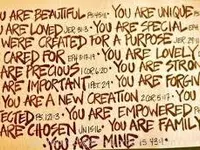 YOU ARE BEAUTIFUL PS 45:11 · YOU ARE UNIQUE PS
U ARE LOVED JER 31:3 · YOU ARE SPECIAL EPH
WERE CREATED FOR A PURPOSE JER 29:11
CARED FOR EPH 3:17-19 · YOU ARE LOVELY
ARE PRECIOUS 1 COR 6:20 · YOU ARE STRON
ARE IMPORTANT 1 PET 2:9 · YOU ARE FORGIV
YOU ARE A NEW CREATION 2 COR 5:17 · YO
ECTED PS. 121:3 · YOU ARE EMPOWERED
ARE CHOSEN JN 15:16 · YOU ARE FAMILY
YOU ARE MINE IS. 43:1